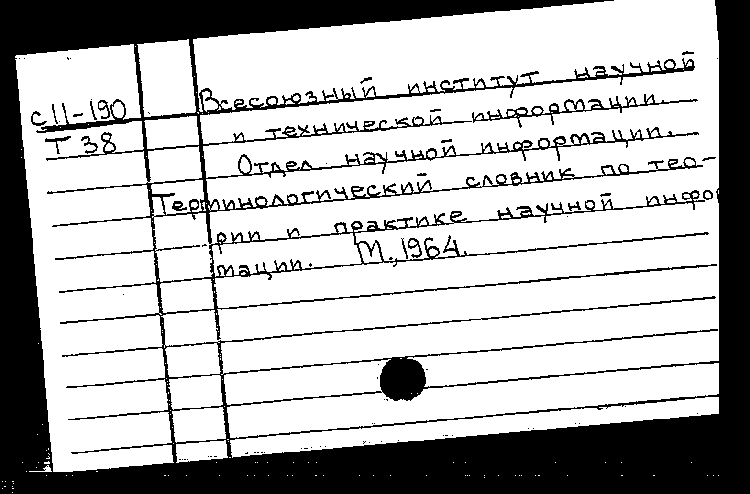 с11-190 Всесоюзный институт научной
Т 38 и технической информации.
Отдел научной информации.
Терминологический словник по тео-
рии и практике научной инфор
мации. М., 1964.